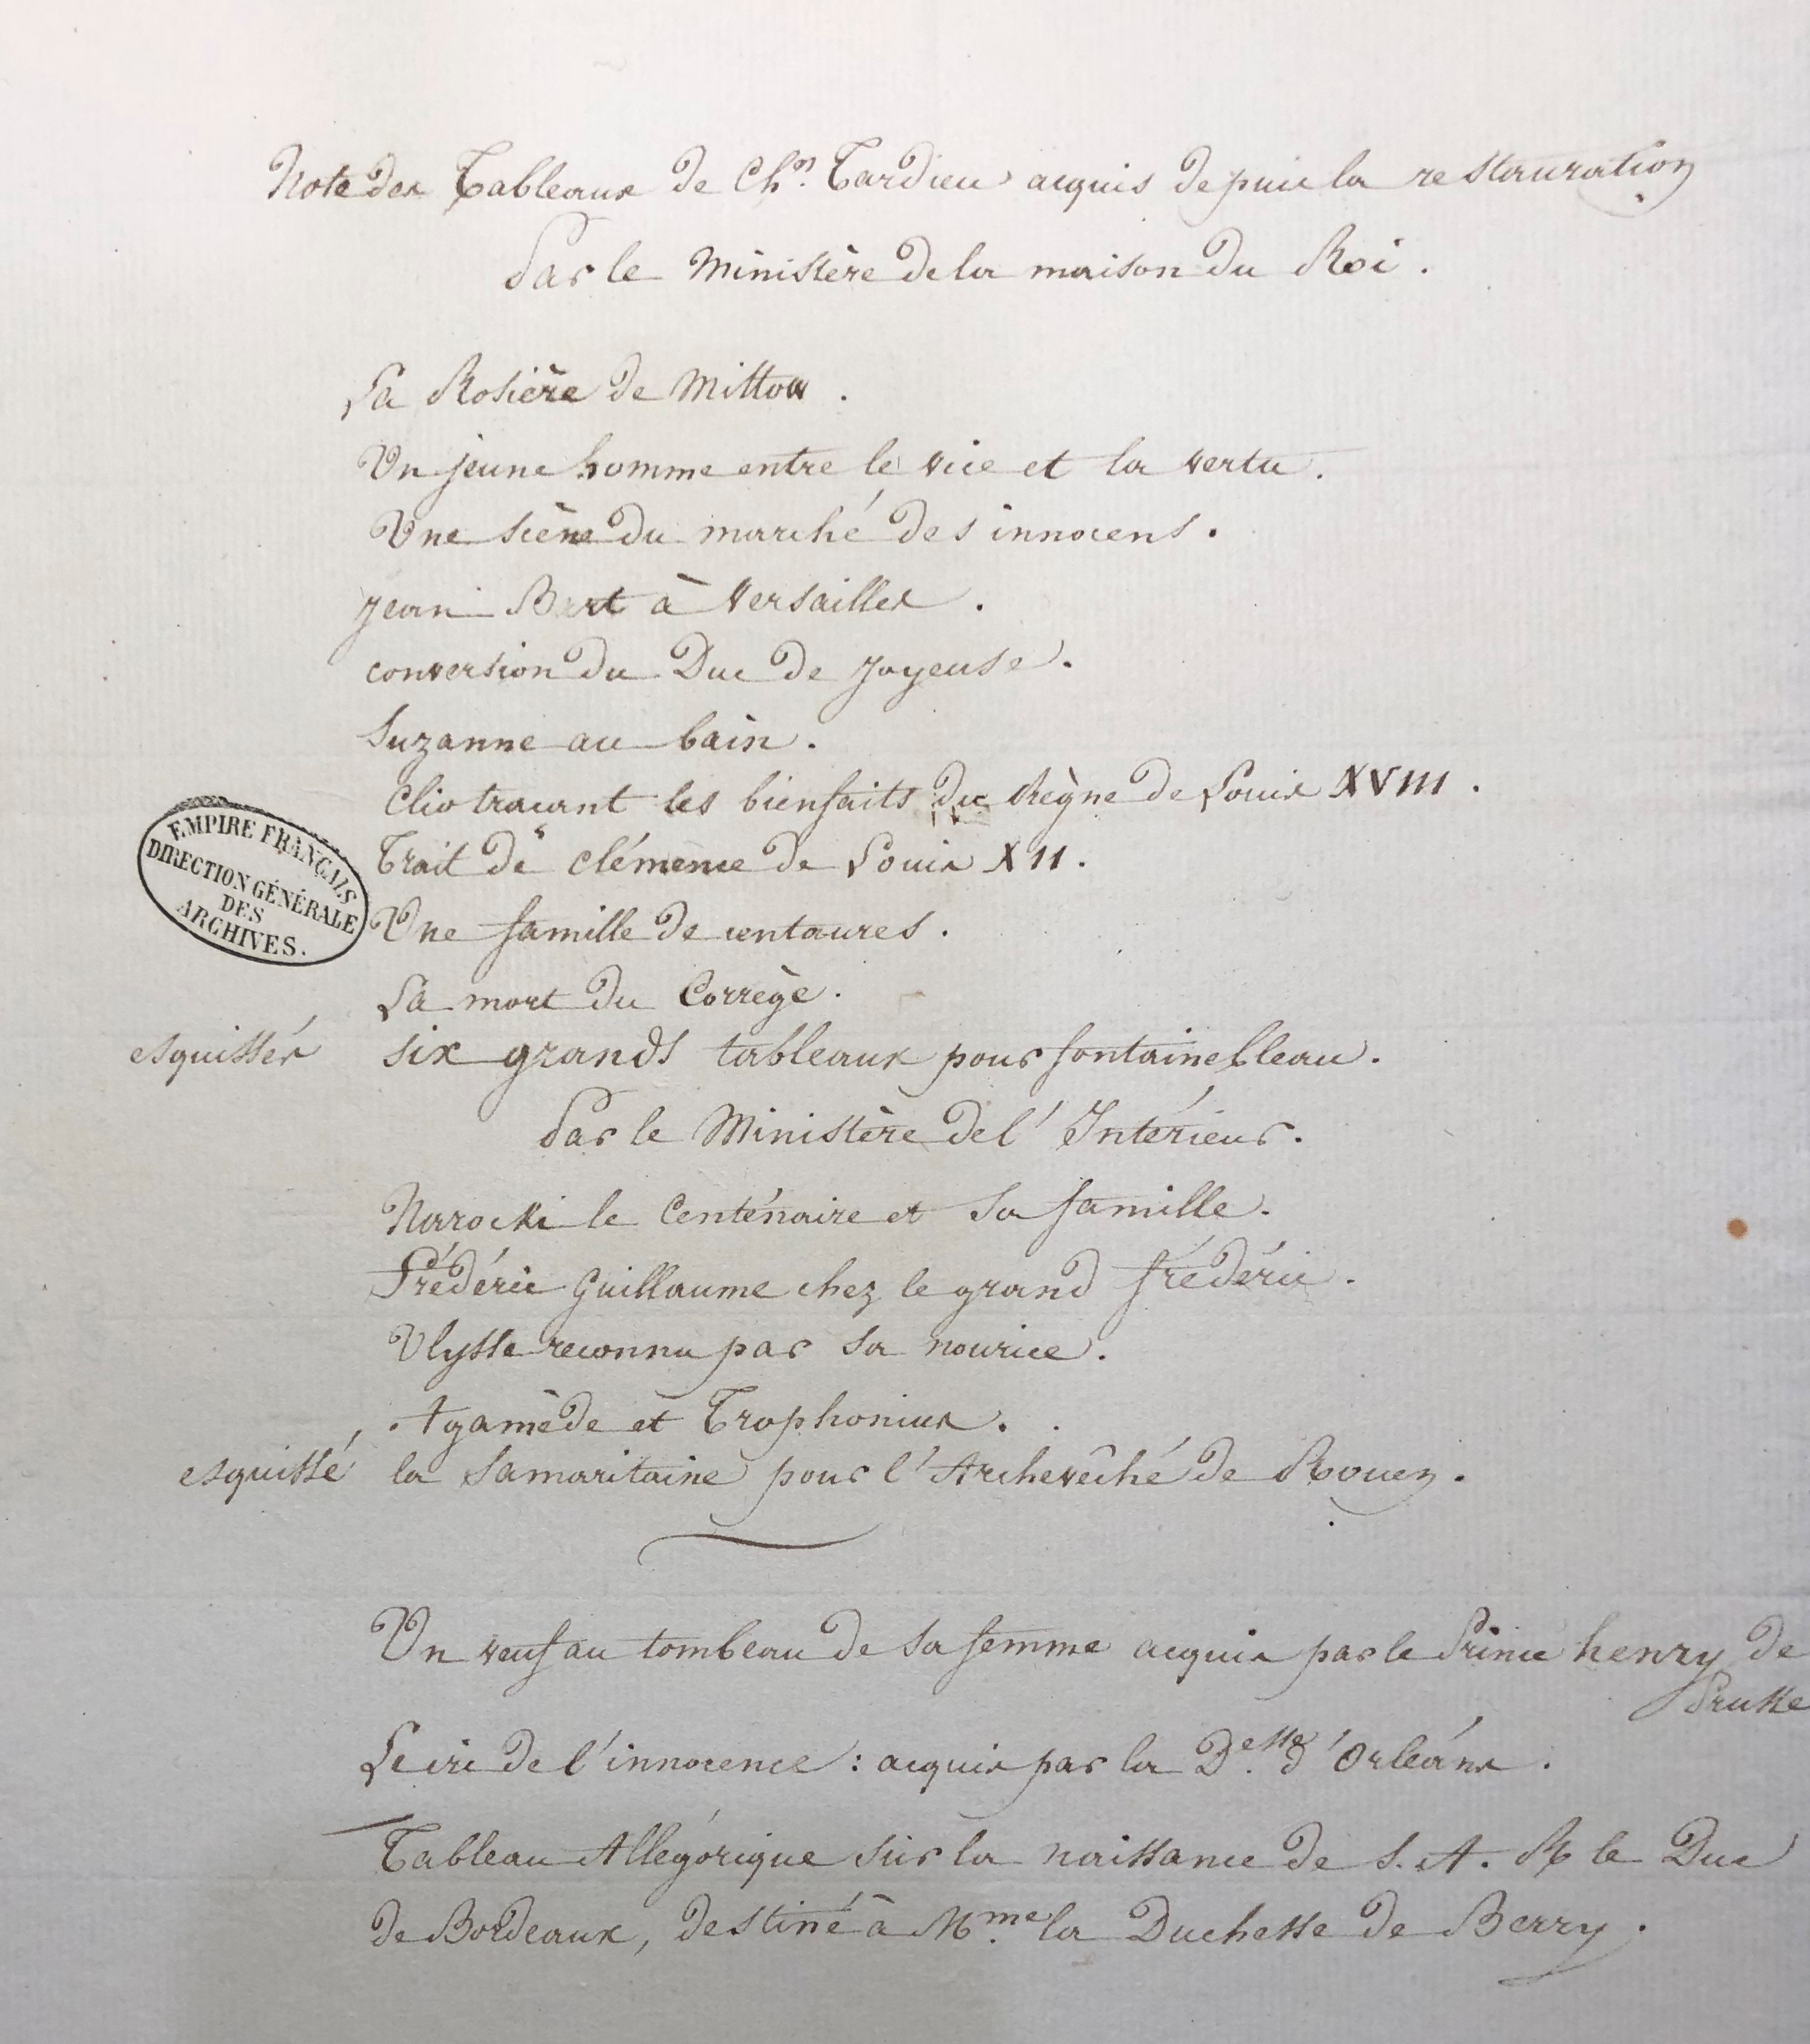 Note des Tableaux de Ch.n Tardieu acquis depuis la restauration
Par le Ministère de la maison du Roi.
La Rosière de Mittow.
Un jeune homme entre le vice et la vertu.
Une scène du marché des innocens.
Jean Bart à Versailles.
conversion du Duc de Joyeuse.
Suzanne au bain.
Clio traçant les bienfaits du Règne de Louis XVIII.
Trait de clémence de Louis XII.
Une famille de centaures.
La mort du Corrège.
esquissés six grands tableaux pour fontainebleau.
Par le Ministère de l'Intérieur.
Narocki le Centénaire et sa famille.
Frédéric Guillaume chez le grand frédéric.
Ulysse reconnu par sa nourice.
Agamède et Trophonius.
esquissé la Samaritaine pour l'Archevêché de Rouen.
Un veuf au tombeau de sa femme acquis par le Prince henry de
Prusse
Le cri de l'innocence : acquis par la D.esse d'Orléans.
Tableau Allégorique sur la naissance de S. A. R le Duc
de Bordeaux, destiné à M.me la Duchesse de Berry.
EMPIRE FRANÇAIS
DIRECTION GÉNÉRALE
DES
ARCHIVES.